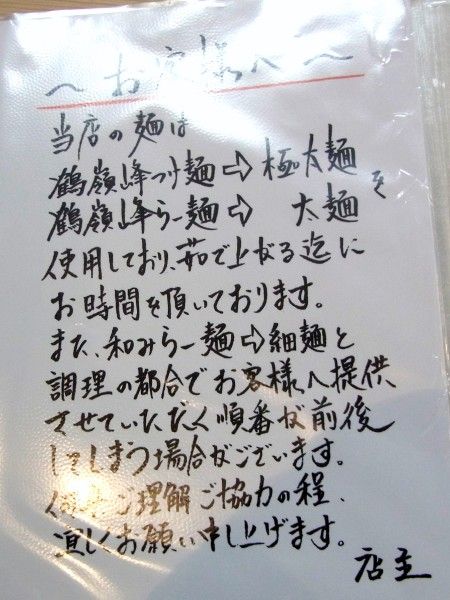 〜お客様へ〜
当店の麺は
鶴嶺峰つけ麺⇨極太麺を
鶴嶺峰らー麺⇨ 太麺
使用しており、茹で上がる迄に
お時間を頂いております。
また、和みらー麺⇨細麺と
調理の都合でお客様へ提供
させていただく順番が前後
してしまう場合がございます。
何卒ご理解ご協力の程、
宜しくお願い申し上げます。
店主